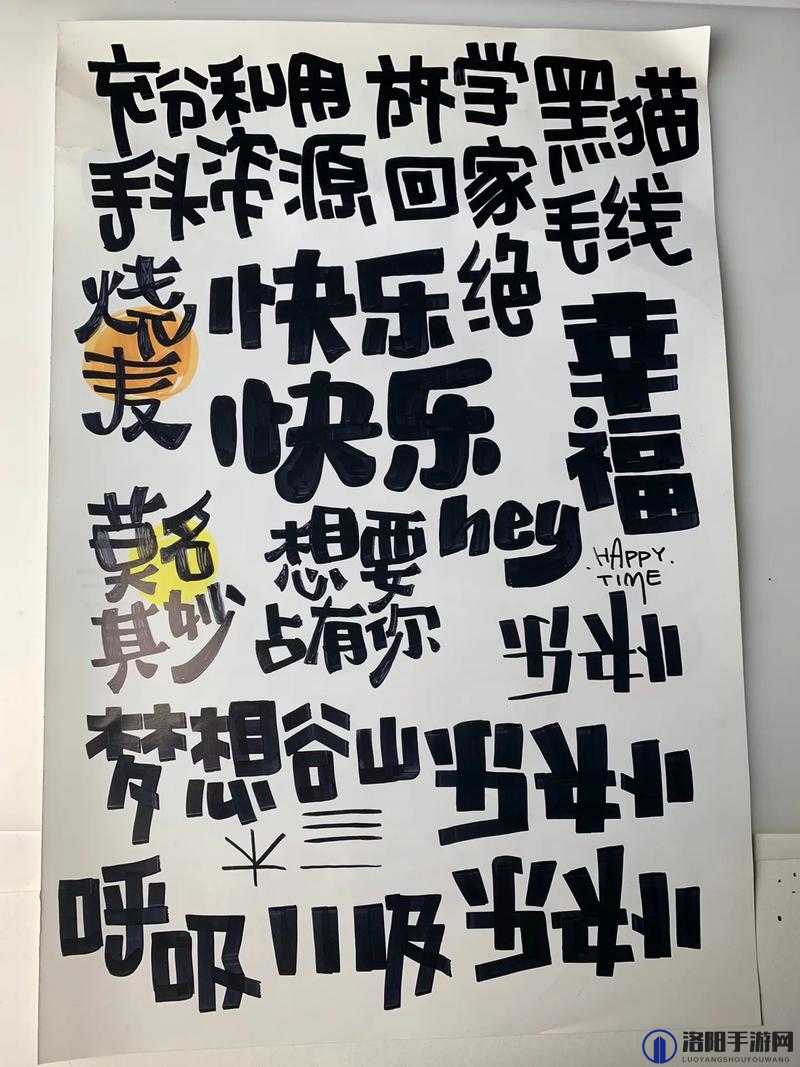 充份和用
手头资源
放学
回家
黑猫
毛线
烧
麦
快乐
绝
快乐
幸
福
莫名
其妙
想要
占有你
hey
.HAPPY.
TIME
快乐
梦想谷山
快乐
呼吸
吸
快乐
洛阳手游网
LUOYANGSHOUYOUWANG